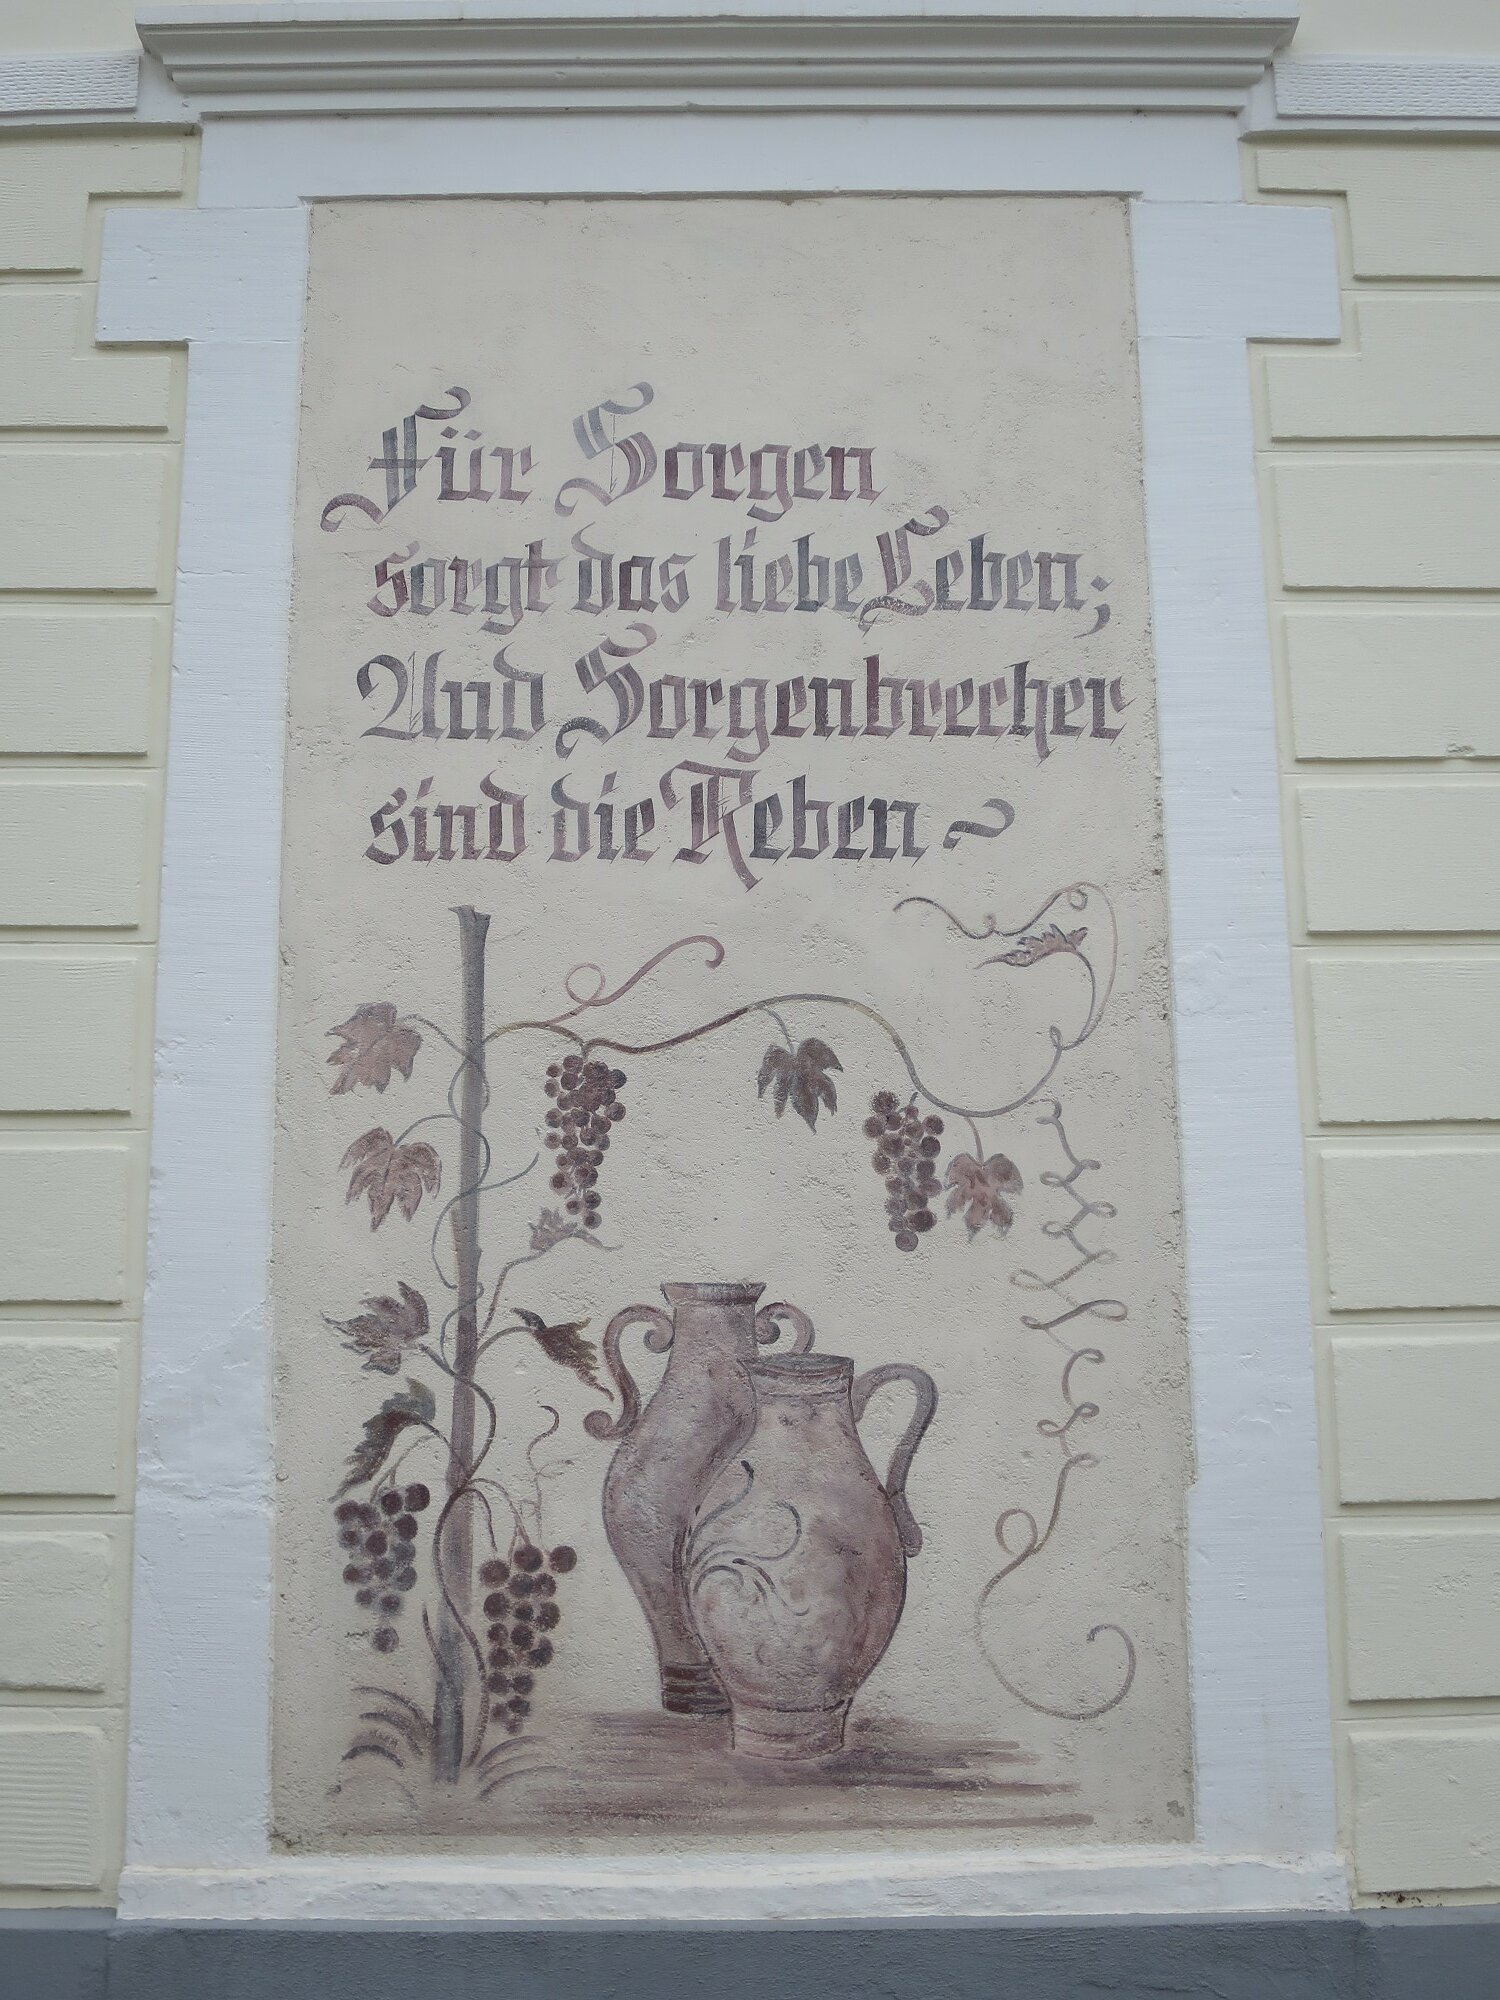 Für Sorgen
sorgt das liebe Leben;
Und Sorgenbrecher
sind die Reben ~